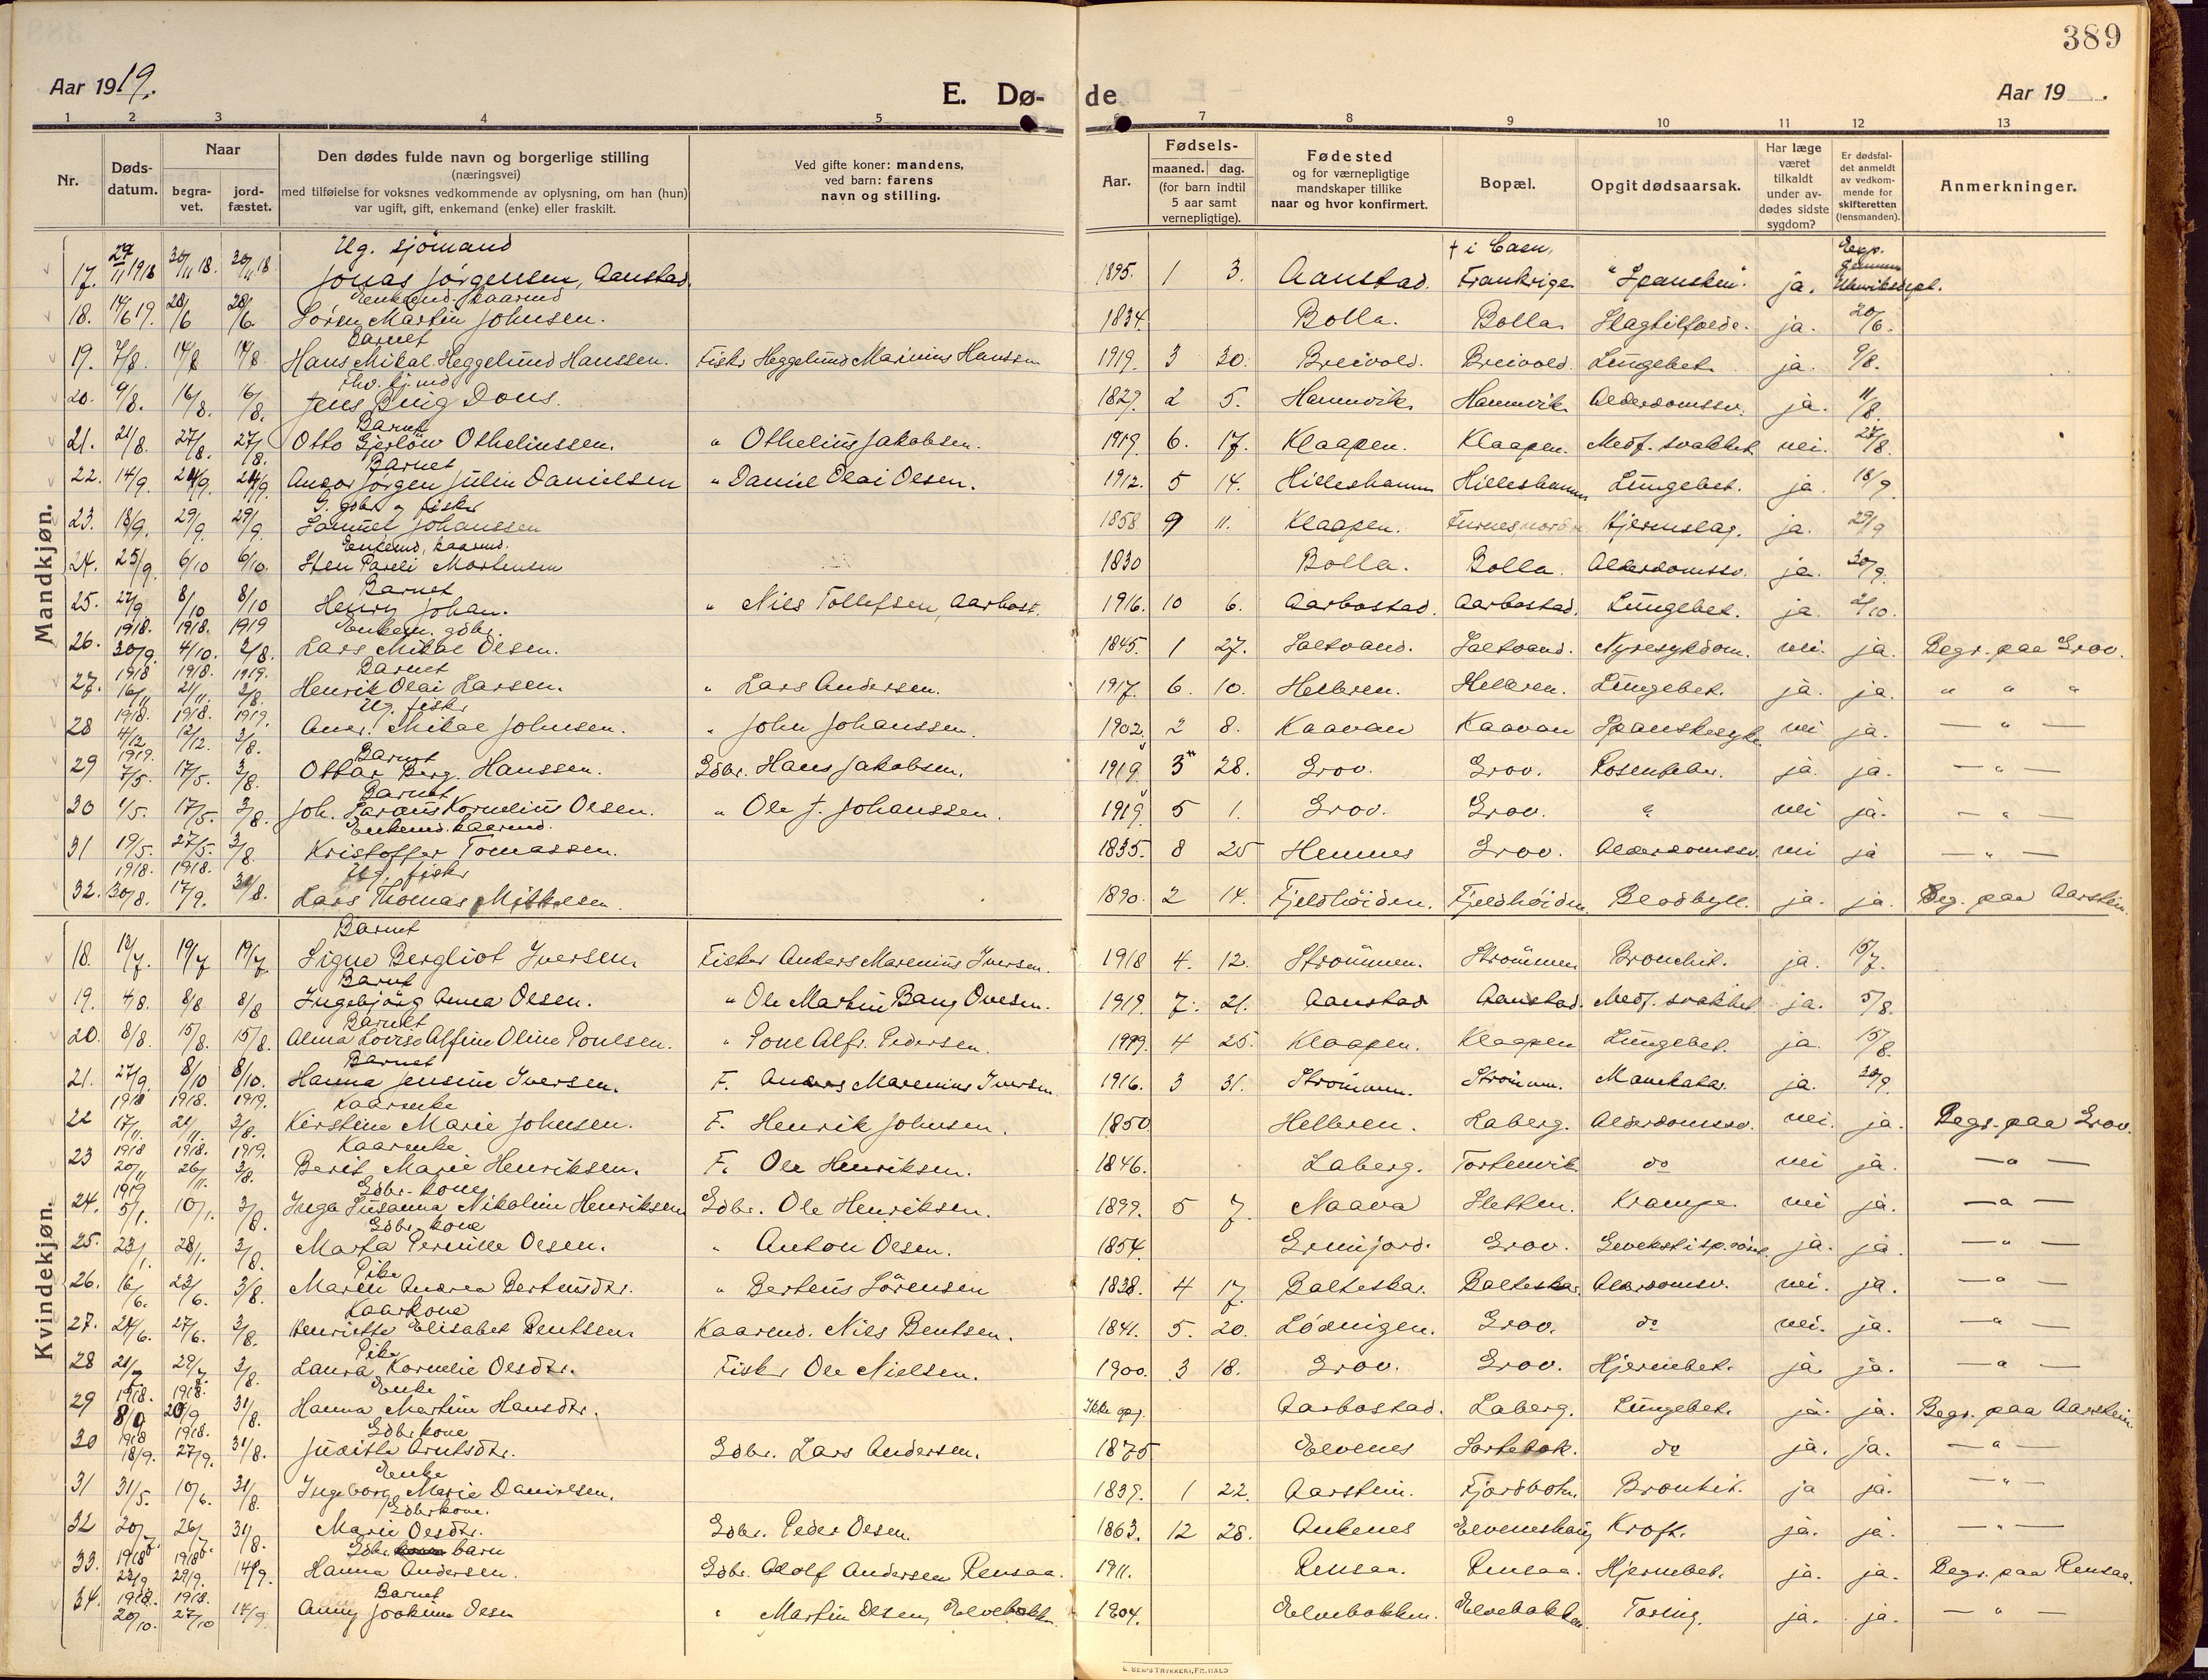 389
Aar 1919.
E. Dø-
de
Aar 19 .
1 2 3 4 5 6 7 8 9 10 11 12 13
Nr.
Døds-datum.
Naar
begra-vet.
jord-fæstet.
Den dødes fulde navn og borgerlige stilling
(næringsvei)
med tilføielse for voksnes vedkommende av oplysning, om han (hun)
var ugift, gift, enkemand (enke) eller fraskilt.
Ved gifte koner: mandens,
ved barn: farens
navn og stilling.
Aar.
Fødsels-
maaned. dag.
(for barn indtil
5 aar samt
vernepligtige).
Fødested
og for værnepligtige
mandskaper tillike
naar og hvor konfirmert.
Bopæl.
Opgit dødsaarsak.
Har læge
været
tilkaldt
under av-
dødes sidste
sygdom?
Er dødsfal-
det anmeldt
av vedkom-
mende for
skifteretten
(lensmanden).
Anmerkninger.
Mandkjøn.
Ug. sjömand † i Caen,
17. 29/11 1918 30/11 18. 30/11 18 Jonas Jörgensen, Aanstad. 1895. 1 3. Aanstad. Frankrige. "Spansken". ja.
Enkemd. kaarmd
18. 14/6 19. 28/6 28/6. Sören Martin Johnsen. 1834. Bolla. Bolla. Slagtilfælde. ja. 20/6.
Barnet
19. 7/8. 14/8 14/8. Hans Mikal Heggelund Hanssen. Fisker Heggelund Marinius Hanssen 1919. 3 30. Breivold. Breivold. Lungebet. ja. 9/8.
20. 9/8. 16/8. 16/8. Jens Buig Dons. 1829. 2 5. Hamnvik. Hamnvik. Alderdomssv. ja. 11/8.
Barnet
21. 21/8. 27/8. 27/8. Otto Gjerlöw Otheliussen. " Othelius Jakobsen. 1919. 6. 17. Klaapen. Klaapen. Medf. svakhet nei. 27/8.
Barnet
22. 14/9. 24/9. 24/9. Ansor Jörgen Julin Danielsen " Daniel Olai Olsen. 1912. 5 14. Hilleshamn Hilleshamn Lungebet. ja. 18/9
G. gbr. og fisker
23. 18/9. 29/9. 29/9. Samuel Johanssen 1858 9 11. Klaapen. Hjerneslag. ja. 29/9
Enkemd, kaarmd.
24. 25/9. 6/10 6/10. Sten Pareli Mortensen 1830 Bolla. Bolla. Alderdomssv. ja. 30/9.
Barnet
25. 27/9 8/10 8/10 Henry Johan. " Nils Tollefsen, Aarbost. 1916. 10 6. Aarbostad. Aarbostad. Lungebet. ja. 2/10.
1918. 1918. 1919 Enkem. gdbr.
26. 30/9. 4/10. 2/8. Lars Mikal Olsen. 1845. 1 27. Saltvand. Saltvand. Nyresykdom. nei. ja. Begr. paa Grov.
1918 1918. 1919. Barnet
27. 16/11 21/11. 3/8. Henrik Olai Larsen. " Lars Andersen. 1917. 6. 10. Helbren. Helbren. Lungebet. ja. ja. " " "
1918. 1918. 1919. Ug. fisker
28 4/12 12/12. 3/8. Andr. Mikal Johnsen. " John Johanssen. 1902. 2 8. Kaavan Kaavan Spanskesyke nei ja. — " —
1919. Barnet
29 7/5. 17/5. 3/8. Ottar Berg. Hanssen. Gdbr. Hans Jakobsen. 1919. 3 28. Grov. Grov. Rosenfeber. ja. ja. — " —
Barnet
30 1/5. 17/5. 3/8. Joh. Kornelius Olsen. " Ole J. Johanssen. 1919. 5 1. Grov. Grov. " nei ja. — " —
Enkemd. kaarmd.
31 19/5. 27/5. 3/8. Kristoffer Tomassen. 1835. 8 25 Hennes Grov. Alderdomssv. nei ja — " —
1918. 1918. Ug. fisker
32. 30/8. 17/9. 31/8. Lars Thomas Mikkelsen. 1890. 2 14. Fjeldhöiden. Fjeldhöiden. Blodbyll. ja. ja. Beg. paa Aarstein.
Kvindekjøn.
Barnet
18. 12/7. 19/7 19/7. Signe Bergliot Iversen. Fisker Anders Marenius Iversen. 1918 4. 12. Strömmen. Strömmen Bronchit. ja. 15/7.
Barnet
19. 4/8. 8/8 8/8 Ingebjörg Anna Olsen. " Ole Martin Bang Ovesen. 1919. 7. 21. Aanstad Aanstad. Medf. svakhet ja. 5/8.
Barnet
20. 8/8. 15/8. 15/8. Alma Lovise Alfine Oline Poulsen. " Poul Alfr. Pedersen. 4 25. Klaapen. Klaapen Lungebet. ja 15/8.
Barnet
21. 27/9. 8/10 8/10. Hanna Jensine Iversen. F. Anders Marenius Iversen. 1916. 3 31. Strömmen. Strömmen. ja. 30/9.
1918 1918. 1919. Kaarenke
22 17/11. 21/11. 3/8. Kirstine Marie Johnsen. F. Henrik Johnsen. 1850 Helbren. Raberg. Alderdomssv. nei. ja. Begr. paa Grov.
1918 1918. 1919. Kaarenke
23 20/11 26/11. 3/8. Berit Marie Henriksen. F. Ole Henriksen. 1846. Laberg. Tortenvik do nei ja. — " —
1919 Gdbr. kone
24. 5/1. 10/1. 3/8. Inga Susanna Nikoline Henriksen Gdbr. Ole Henriksen. 1899. 5 7. Naava Sletten. Krampe. nei ja. — " —
Gdbr. kone
25. 23/1. 28/1. 3/8. Marta Pernille Olsen. " Anton Olsen. 1854. Grov. ja. ja. — " —
Pike
26. 16/6. 23/6. 3/8. Maren Andrea Bertusdtr. " Berteus Sörensen 1838. 4 17. Balteskar. Balteskar. Aldersomsv. nei. ja. — " —
Kaarkone
27. 24/6. 27/6. 3/8. Henriette Elisabet Bentsen. Kaarmd. Nils Bentsen. 1841. 5. 20. Lödingen. Grov. do nei. ja. — " —
Pike
28 21/7 29/7. 3/8. Laura Kornelie Olsdtr. Fisker Ole Nielsen. 1900. 3 18. Grov. Grov. Hjernebet. ja. ja. — " —
1918. 1918. Enke
29 8/9 20/9 31/8. Hanna Martine Hansdtr. Ikke opg. Aarbostad. Laberg. Lungebet. ja. ja. Begr. paa Aarstein.
1918 1918. Gdbr kone
30 18/9. 27/9. 31/8. Juditte Arntsdtr. Gdbr. Lars Andersen. 1875 Elvenes Sortebak. do ja. ja. — " —
Enke
31 31/5. 10/6. 31/8. Ingeborg Marie Danielsen. 1839. 1 22. Aarstein. Fjordbotn. Bronkit. ja ja. — " —
Gdbrkone.
32 20/7. 26/7. 31/8. Marie Olsdtr. Gdbr. Peder Olsen. 1863. 12 28. Ankenes Elveneshaug Kræft. ja. ja. — " —
1918 1918 Gdbr. barn
33. 22/9 29/9. 14/9. Hanna Andersen. Gdbr. Adolf Andersen Rensaa. 1911. Rensaa. Rensaa. Hjernebet. ja. ja. Begr. paa Rensaa.
1918. 1918. Barnet
34. 20/10. 27/10 14/9. Anny Joakime Olsen " Martin Olsen, Elvebakken. 1904. Elvebakken. Elvebakken. Tæring. ja. ja. — " —